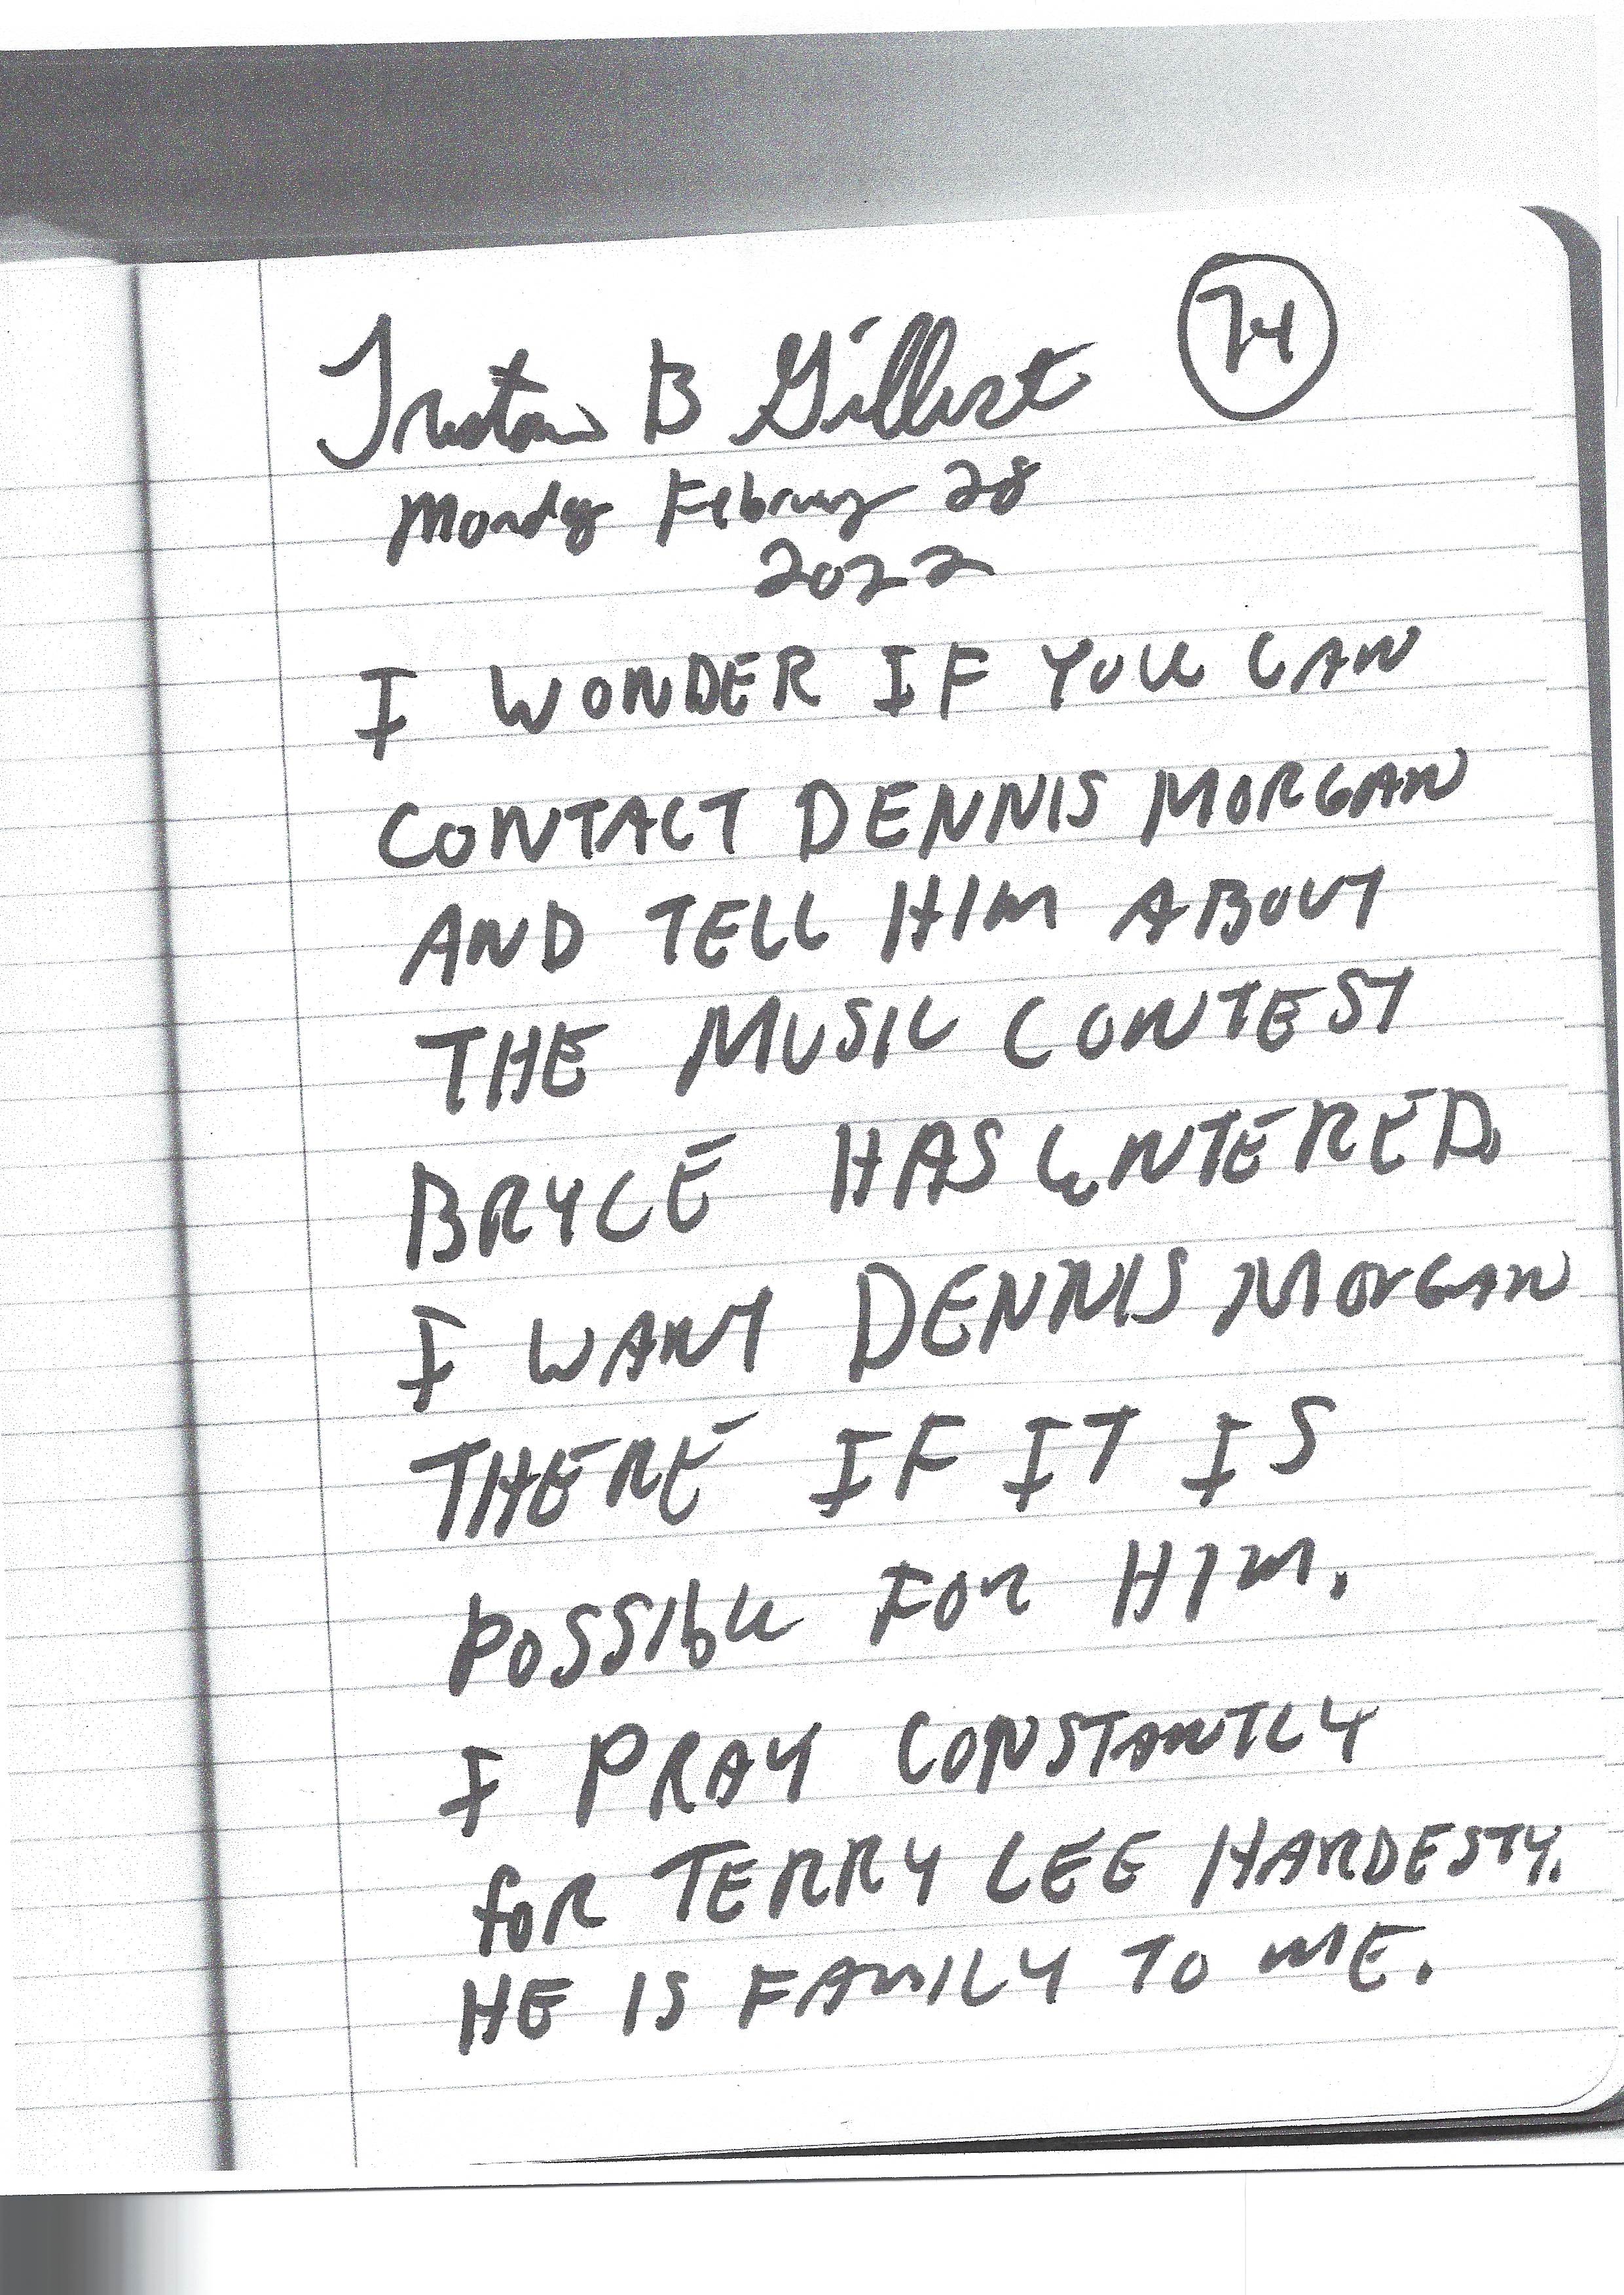 74
B Gillert
Monday February 28
2022
I WONDER IF YOU CAN
CONTACT DENNIS MORGAN
AND TELL HIM ABOUT
THE MUSIC CONTEST
BRYCE HAS ENTERED.
I WANT DENNIS MORGAN
THERE IF IT IS
POSSIBLE FOR HIM.
I PRAY CONSTANTLY
FOR TERRY LEE HARDESTY.
HE IS FAMILY TO ME.